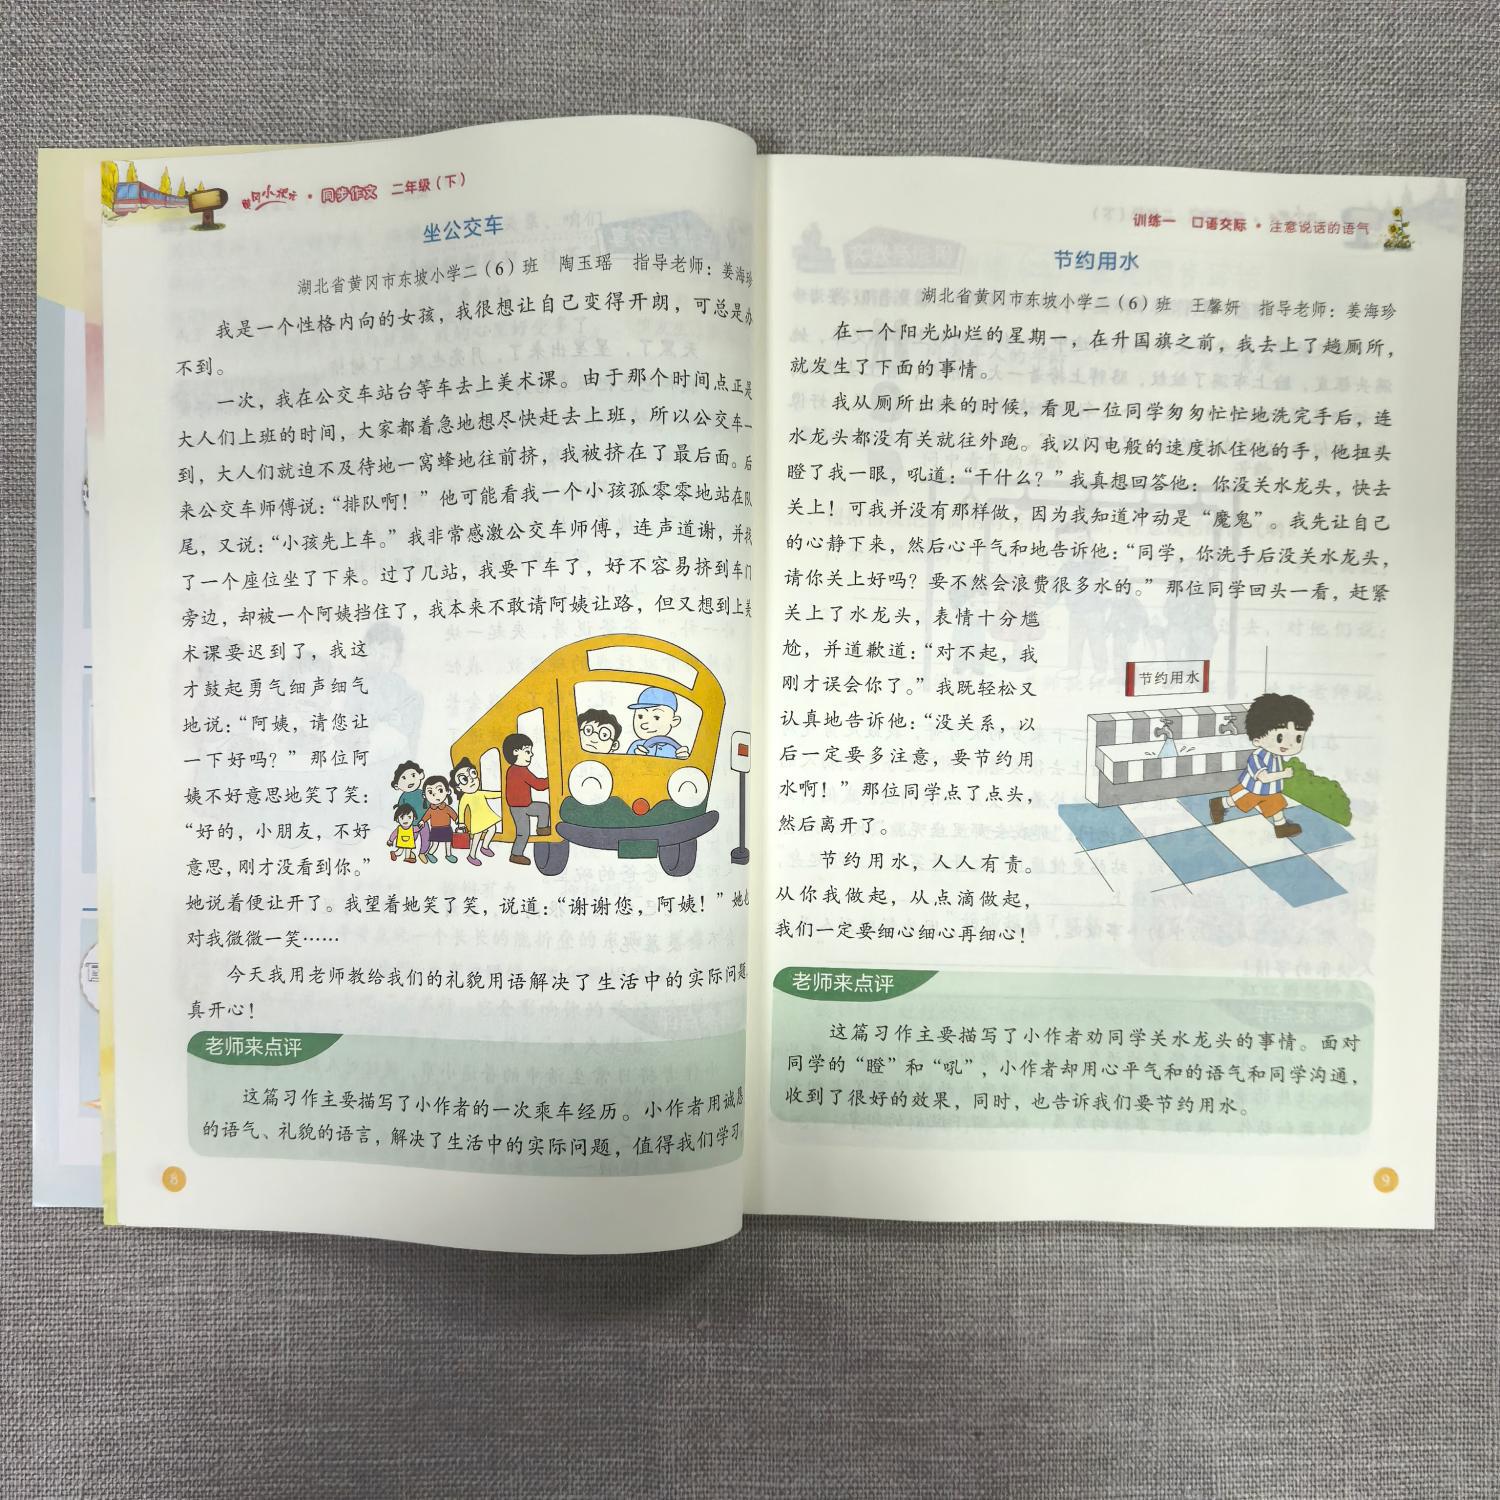 黄冈小状元·同步作文 二年级（下）
坐公交车
湖北省黄冈市东坡小学二（6）班 陶玉瑶 指导老师：姜海珍
我是一个性格内向的女孩，我很想让自己变得开朗，可总是办
不到。
一次，我在公交车站台等车去上美术课。由于那个时间点正是
大人们上班的时间，大家都着急地想尽快赶去上班，所以公交车一
到，大人们就迫不及待地一窝蜂地往前挤，我被挤在了最后面。后
来公交车师傅说：“排队啊！”他可能看我一个小孩孤零零地站在队
尾，又说：“小孩先上车。”我非常感激公交车师傅，连声道谢，并找
了一个座位坐了下来。过了几站，我要下车了，好不容易挤到车门
旁边，却被一个阿姨挡住了，我本来不敢请阿姨让路，但又想到上美
术课要迟到了，我这
才鼓起勇气细声细气
地说：“阿姨，请您让
一下好吗？”那位阿
姨不好意思地笑了笑：
“好的，小朋友，不好
意思，刚才没看到你。”
她说着便让开了。我望着她笑了笑，说道：“谢谢您，阿姨！”她也
对我微微一笑……
今天我用老师教给我们的礼貌用语解决了生活中的实际问题，
真开心！
老师来点评
这篇习作主要描写了小作者的一次乘车经历。小作者用诚恳
的语气、礼貌的语言，解决了生活中的实际问题，值得我们学习
8
训练一 口语交际·注意说话的语气
节约用水
湖北省黄冈市东坡小学二（6）班 王馨妍 指导老师：姜海珍
在一个阳光灿烂的星期一，在升国旗之前，我去上了趟厕所，
就发生了下面的事情。
我从厕所出来的时候，看见一位同学匆匆忙忙地洗完手后，连
水龙头都没有关就往外跑。我以闪电般的速度抓住他的手，他扭头
瞪了我一眼，吼道：“干什么？”我真想回答他：你没关水龙头，快去
关上！可我并没有那样做，因为我知道冲动是“魔鬼”。我先让自己
的心静下来，然后心平气和地告诉他：“同学，你洗手后没关水龙头，
请你关上好吗？要不然会浪费很多水的。”那位同学回头一看，赶紧
关上了水龙头，表情十分尴
尬，并道歉道：“对不起，我
刚才误会你了。”我既轻松又
认真地告诉他：“没关系，以
后一定要多注意，要节约用
水啊！”那位同学点了点头，
然后离开了。
节约用水，人人有责。
从你我做起，从点滴做起，
我们一定要细心细心再细心！
节约用水
老师来点评
这篇习作主要描写了小作者劝同学关水龙头的事情。面对
同学的“瞪”和“吼”，小作者却用心平气和的语气和同学沟通，
收到了很好的效果，同时，也告诉我们要节约用水。
9